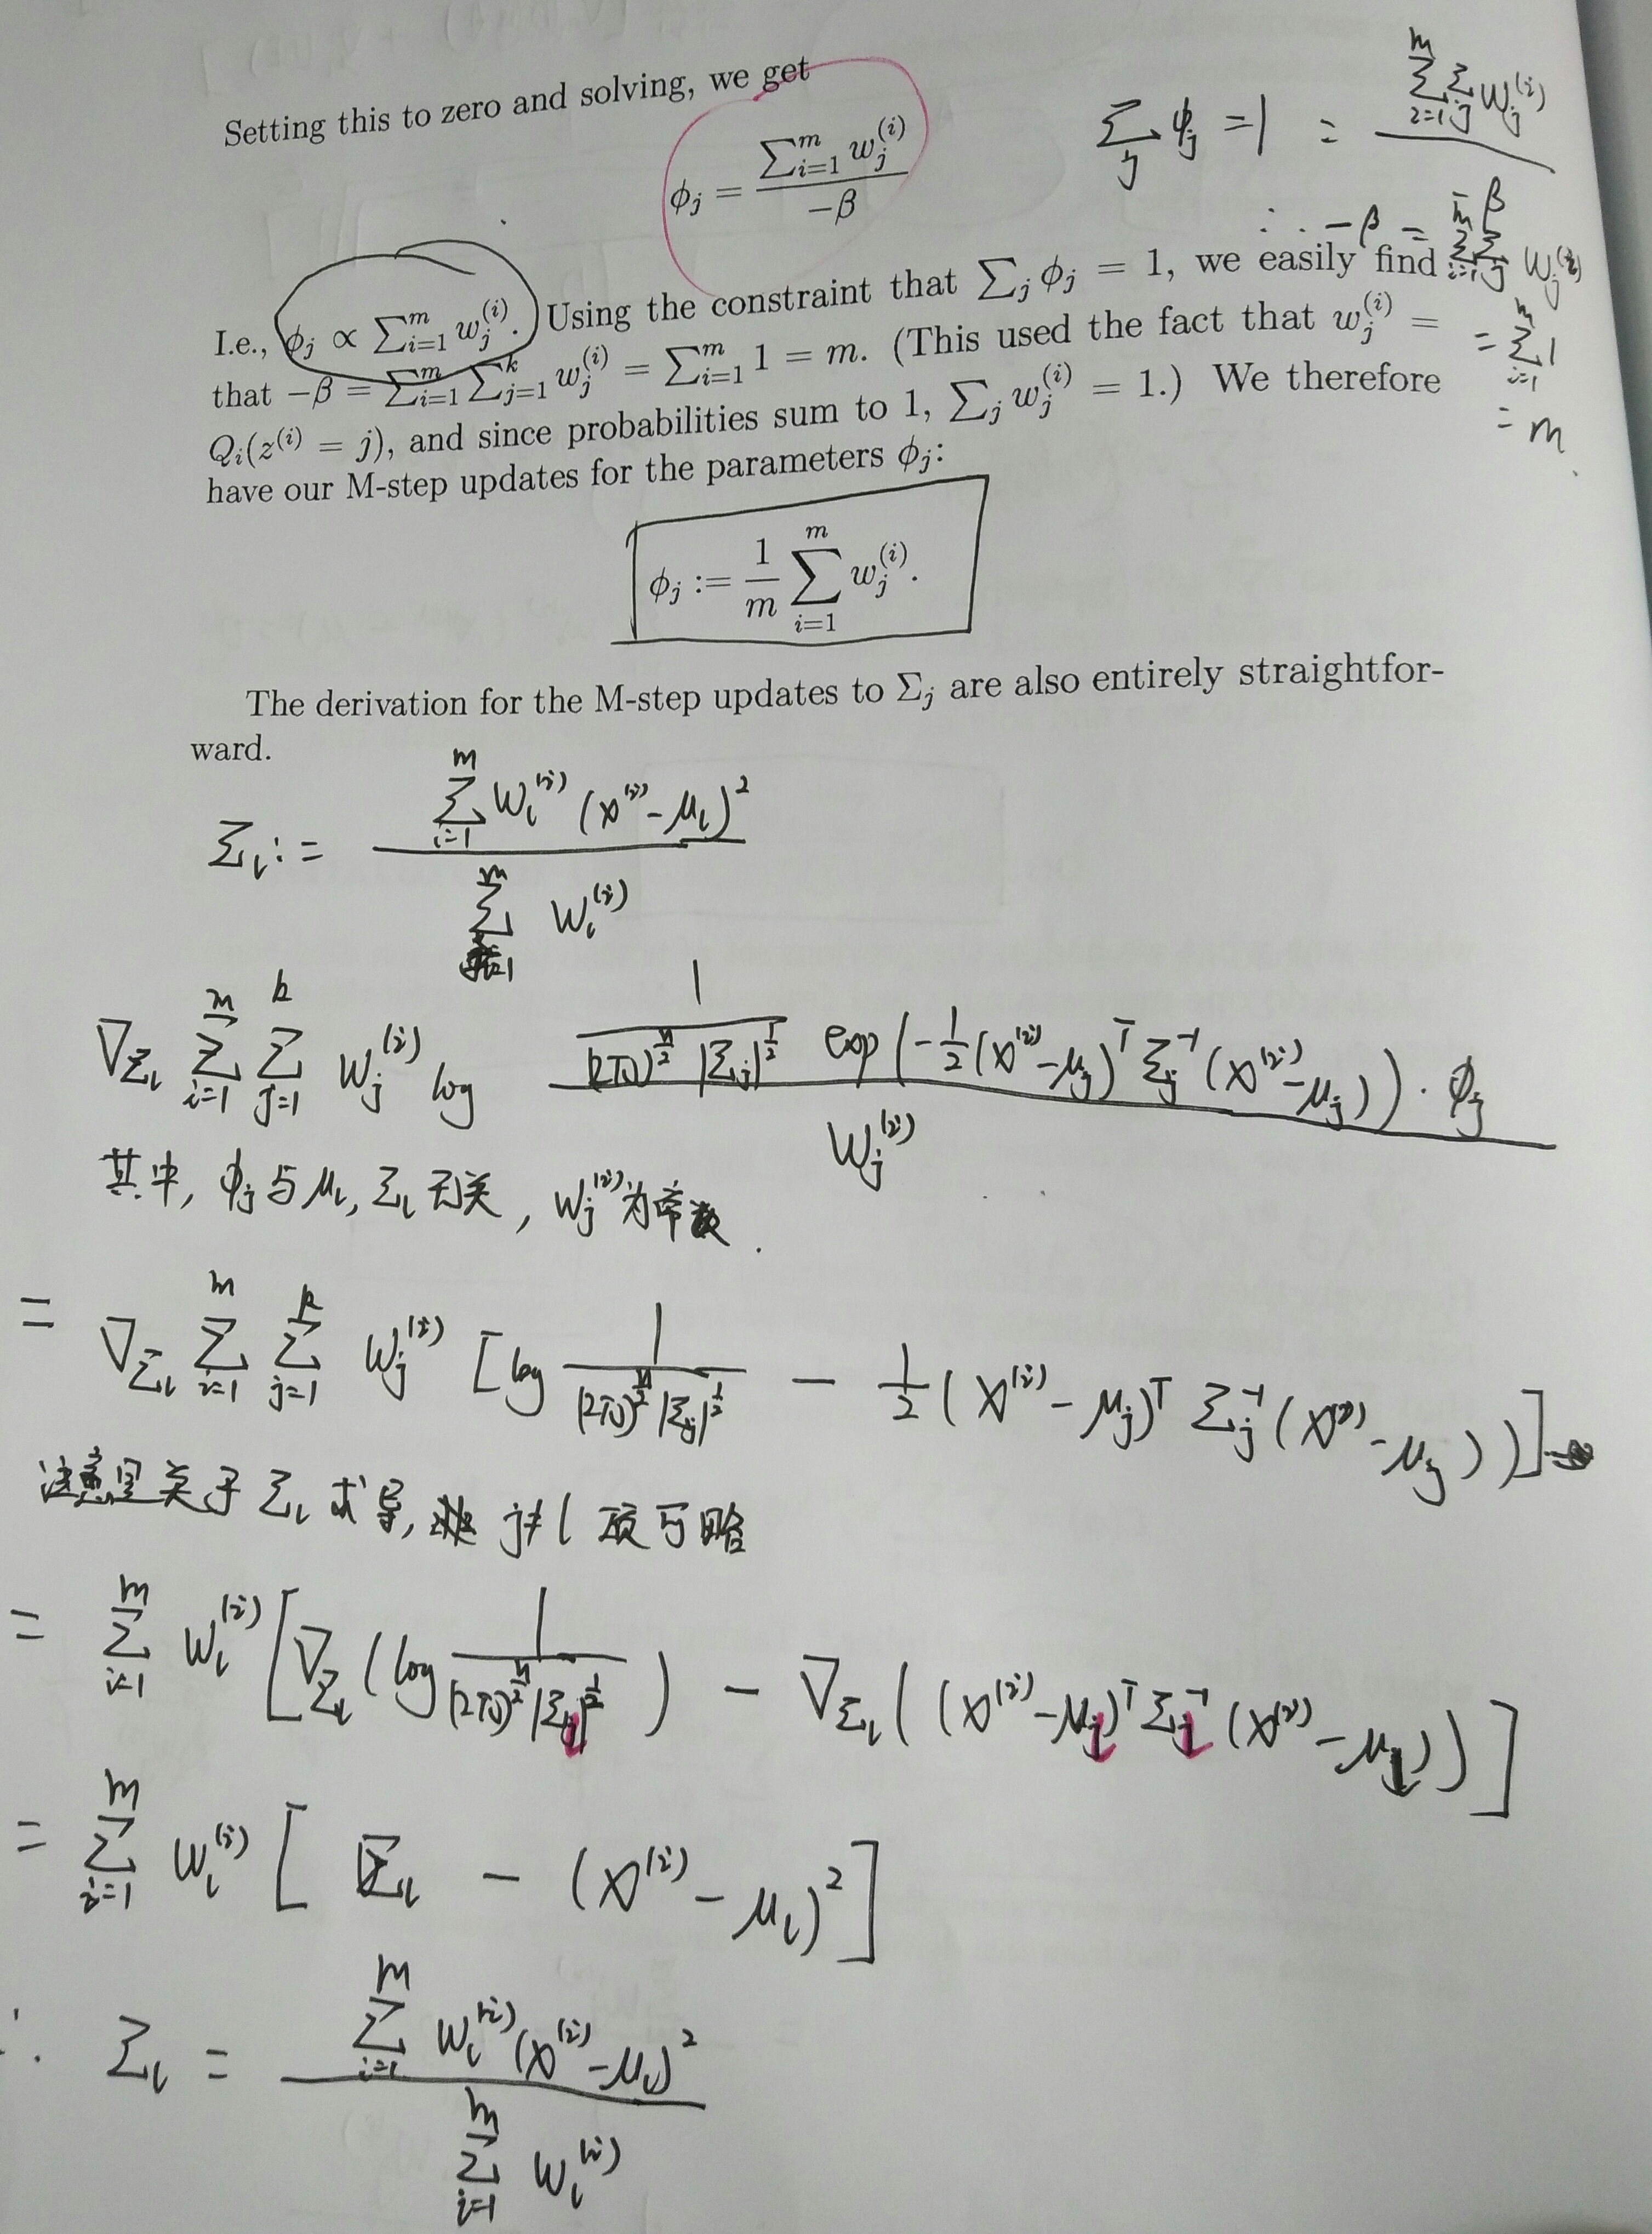 Setting this to zero and solving, we get
ϕ_j = \frac{∑_{i=1}^{m} w_j^{(i)}}{−β}
∑_j ϕ_j = 1 = \frac{∑_{i=1}^{m} ∑_j W_j^{(i)}}{−β}
∴ −β = ∑_{i=1}^{m} ∑_j W_j^{(i)}
= ∑_{i=1}^{m} 1
= m.
I.e., ϕ_j ∝ ∑_{i=1}^{m} w_j^{(i)}. Using the constraint that ∑_j ϕ_j = 1, we easily find
that −β = ∑_{i=1}^{m} ∑_{j=1}^{k} w_j^{(i)} = ∑_{i=1}^{m} 1 = m. (This used the fact that w_j^{(i)} =
Q_i(z^{(i)} = j), and since probabilities sum to 1, ∑_j w_j^{(i)} = 1.) We therefore
have our M-step updates for the parameters ϕ_j:
ϕ_j := \frac{1}{m} ∑_{i=1}^{m} w_j^{(i)}.
The derivation for the M-step updates to Σ_j are also entirely straightfor-
ward.
Σ_l := \frac{∑_{i=1}^{m} W_l^{(i)} (x^{(i)} − μ_l)^2}{∑_{i=1}^{m} W_l^{(i)}}
∇_{Σ_l} ∑_{i=1}^{m} ∑_{j=1}^{k} W_j^{(i)} log \frac{\frac{1}{(2π)^{\frac{n}{2}} |Σ_j|^{\frac{1}{2}}} exp(−\frac{1}{2}(x^{(i)} − μ_j)^T Σ_j^{-1} (x^{(i)} − μ_j)) · ϕ_j}{W_j^{(i)}}
其中, ϕ_j 与 μ_l, Σ_l 无关, W_j^{(i)} 为常数.
= ∇_{Σ_l} ∑_{i=1}^{m} ∑_{j=1}^{k} W_j^{(i)} [log \frac{1}{(2π)^{\frac{n}{2}} |Σ_j|^{\frac{1}{2}}} − \frac{1}{2}(x^{(i)} − μ_j)^T Σ_j^{-1} (x^{(i)} − μ_j))]
注意是关于 Σ_l 求导, j≠l 项可略
= ∑_{i=1}^{m} W_l^{(i)} [∇_{Σ_l}(log \frac{1}{(2π)^{\frac{n}{2}} |Σ_l|^{\frac{1}{2}}}) − ∇_{Σ_l}((x^{(i)} − μ_l)^T Σ_l^{-1} (x^{(i)} − μ_l))]
= ∑_{i=1}^{m} W_l^{(i)} [Σ_l − (x^{(i)} − μ_l)^2]
∴ Σ_l = \frac{∑_{i=1}^{m} W_l^{(i)} (x^{(i)} − μ_l)^2}{∑_{i=1}^{m} W_l^{(i)}}